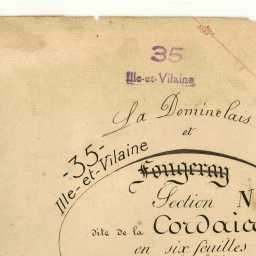 35
Ille-et-Vilaine
La Dominelais
et
-35-
Ille-et-Vilaine
Fougeray
Section N
dite de la Cordair
en six feuilles